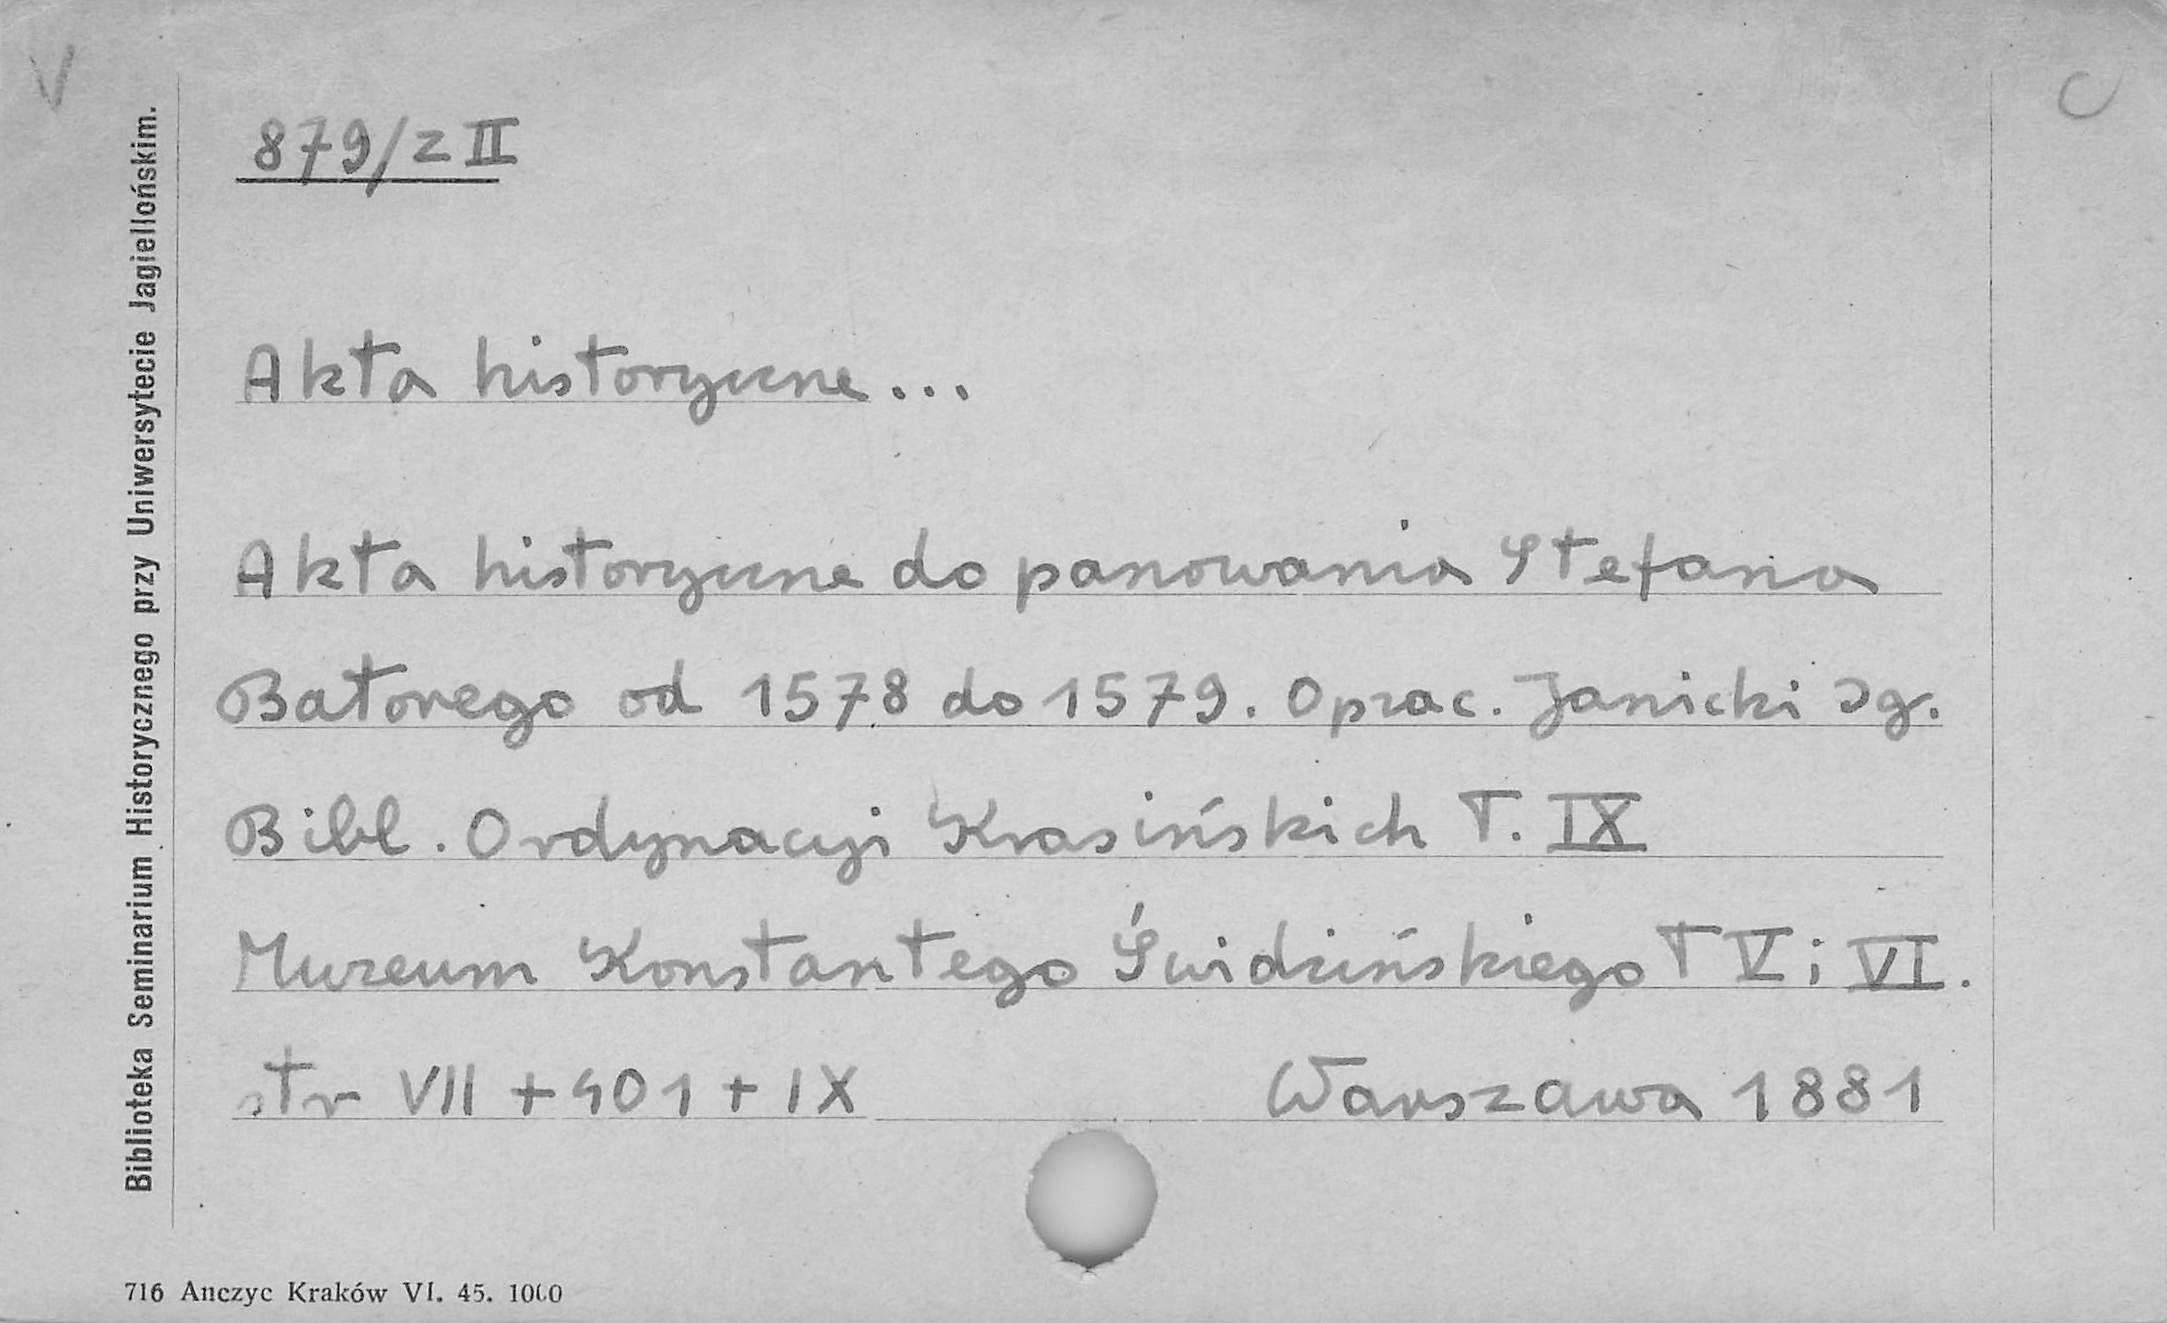 V
C
879/z II
Akta historyczne...
Akta historyczne do panowania Stefana
Batorego od 1578 do 1579. Oprac. Janicki Ig.
Bibl. Ordynacyi Krasińskich T. IX
Muzeum Konstantego Świdzińskiego T V i VI.
str VII + 401 + IX Warszawa 1881
Biblioteka Seminarium Historycznego przy Uniwersytecie Jagiellońskim.
716 Anczyc Kraków VI. 45. 1000